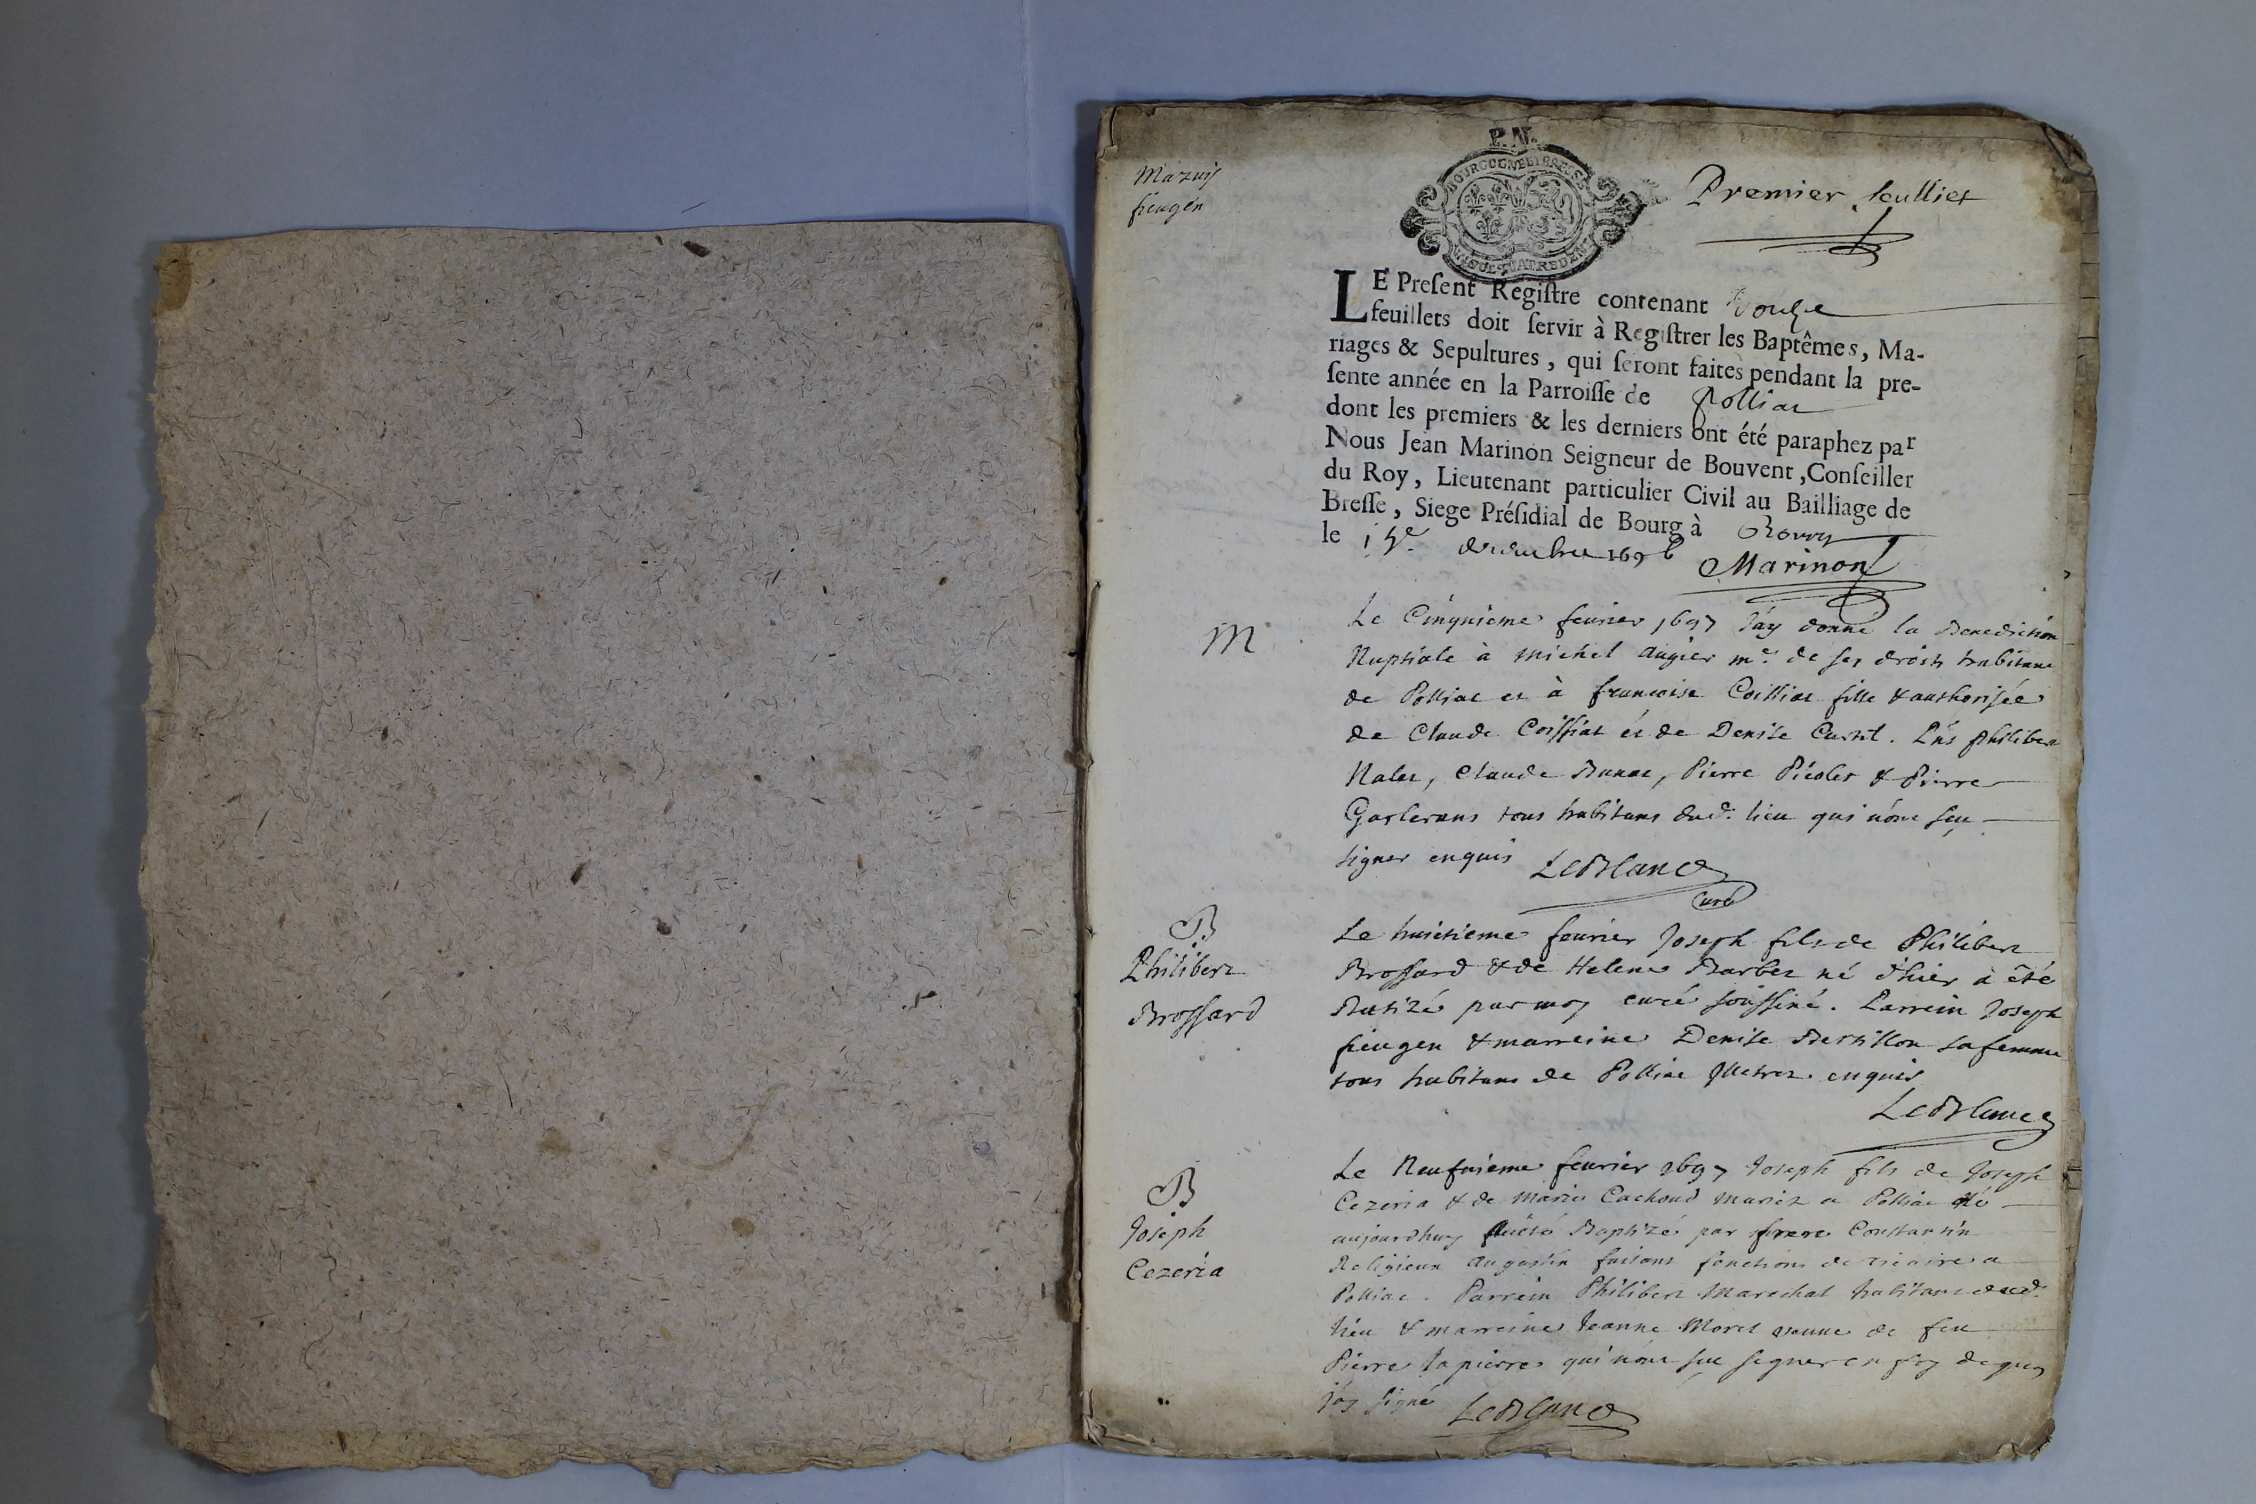 Mazuis
fieugen
P. N.
BOURGOGNE ET BRESSE
Premier feulliet
LE Preſent Regiſtre contenant douze
feuillets doit ſervir à Regiſtrer les Baptêmes, Ma-
riages & Sepultures, qui ſeront faites pendant la pre-
ſente année en la Parroiſſe de Polliat
dont les premiers & les derniers ont été paraphez par
Nous Jean Marinon Seigneur de Bouvent, Conſeiller
du Roy, Lieutenant particulier Civil au Bailliage de
Breſſe, Siege Préſidial de Bourg à Bourg
le 15e decembre 1696
Marinon
M
Le Cinquieme feurier 1697 J'ay donné la Benediction
Nuptiale à Michel Augier me. de ses droits habitant
de Polliat et à francoise Coissiat fille & authorisée
de Claude Coissiat et de Denise Curtil. Pns Philibert
Nalet, Claude Bunat, Pierre Picolet & Pierre
Garlerans tous habitans dud. lieu qui n'ont sçu
signer enquis LeBlanc
Curé
B
Philibert
Brossard
Le huictieme feurier Joseph fils de Philibert
Brossard & de Helene Barbet né d'hier a été
Batizé par moy curé soussiné. Parrein Joseph
fieugen & marreine Denise Bertillon sa femme
tous habitans de Polliat Illetrez enquis
LeBlanc
B
Joseph
Cezeria
Le Neufuieme feurier 1697 Joseph fils de Joseph
Cezeria & de Marie Cachoud mariez a Polliat né
aujourdhuy a été Baptizé par frere Constantin
Religieux Augustin faisant fonctions de vicaire a
Polliat. Parrein Philibert Marechal habitant dud.
lieu & marreine Jeanne Morel veuue de feu
Pierre lapierre qui n'ont sçu segner en foy de quoy
j'ay signé LeBlanc